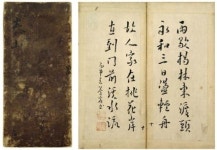 雨歇楊林東渡頭
永和三日盪輕舟
故人家在桃花岸
直到門前溪水流